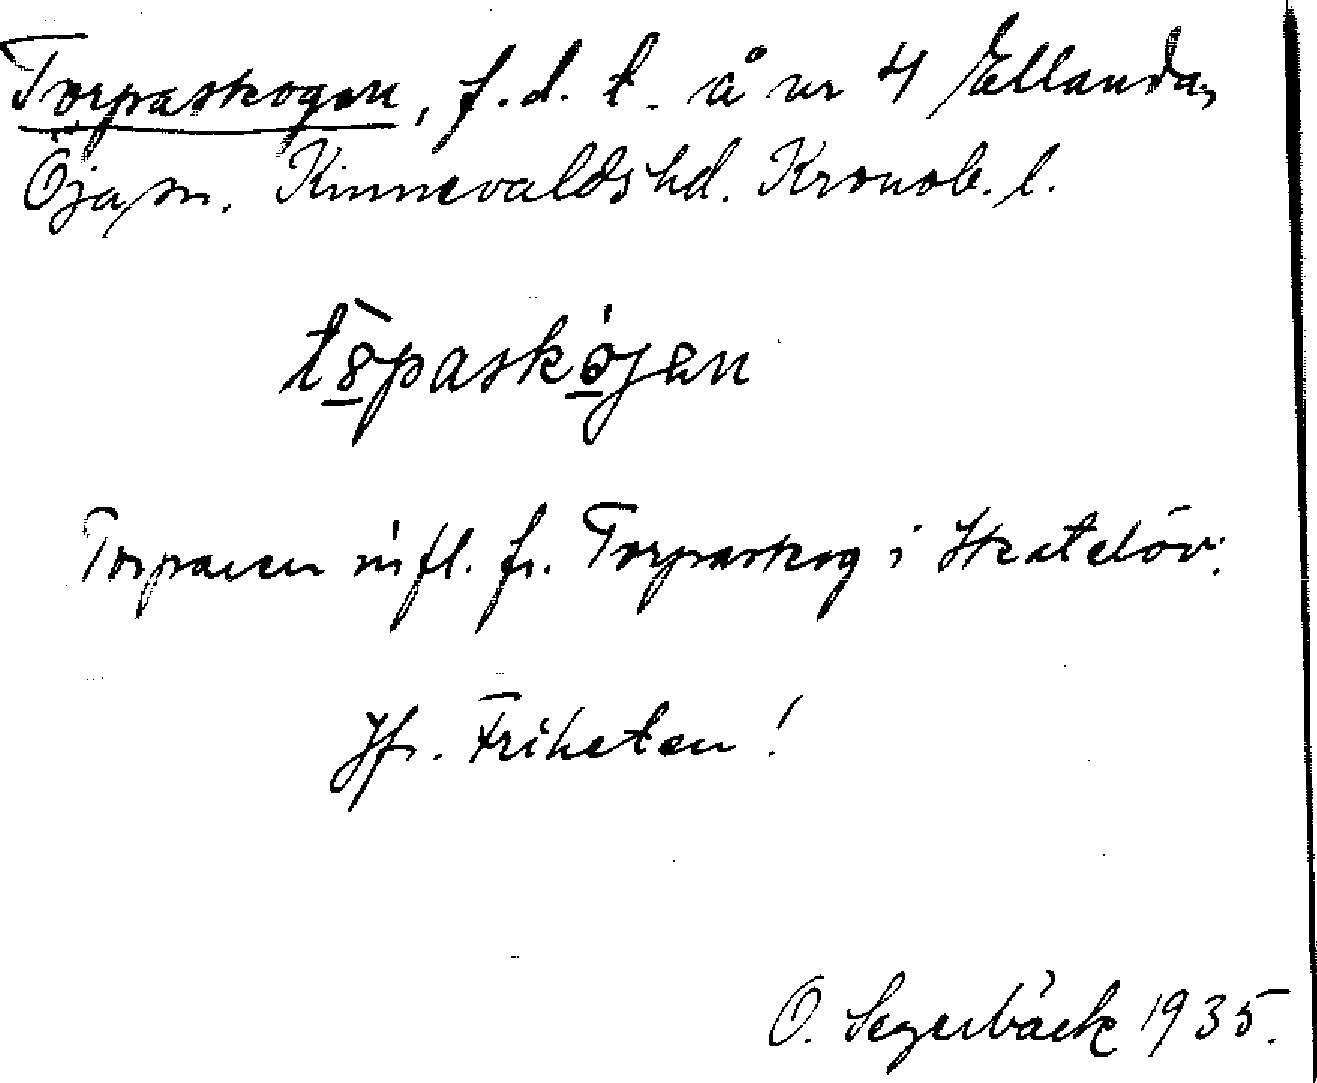 Torpaskogen, f.d. t. å nr 4 Ellanda,
Öja sn. Kinnevalds hd. Kronob. l.
Torparen infl. fr. Torpaskog i Skatelöv.
Jfr. Friheten!
O. Segerbäck 1935.